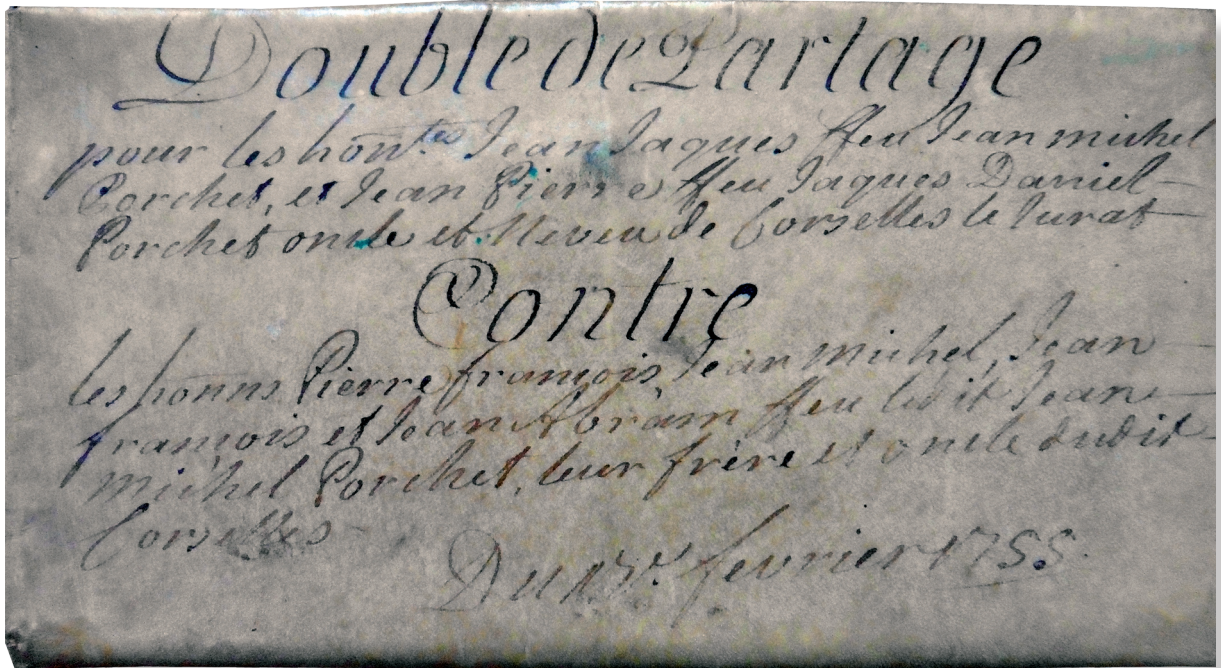 Double de Partage
pour les hon.tes Jean Jaques ffeu Jean michel
Porchet, et Jean Pierre ffeu Jaques Daniel
Porchet oncle et Neveu de Corselles le Jurat
Contre
les honns Pierre françois, Jean michel, Jean
françois et Jean Abram ffeu ledit Jean
michel Porchet, leur frère et oncle dudit
Corselles
Du février 1755